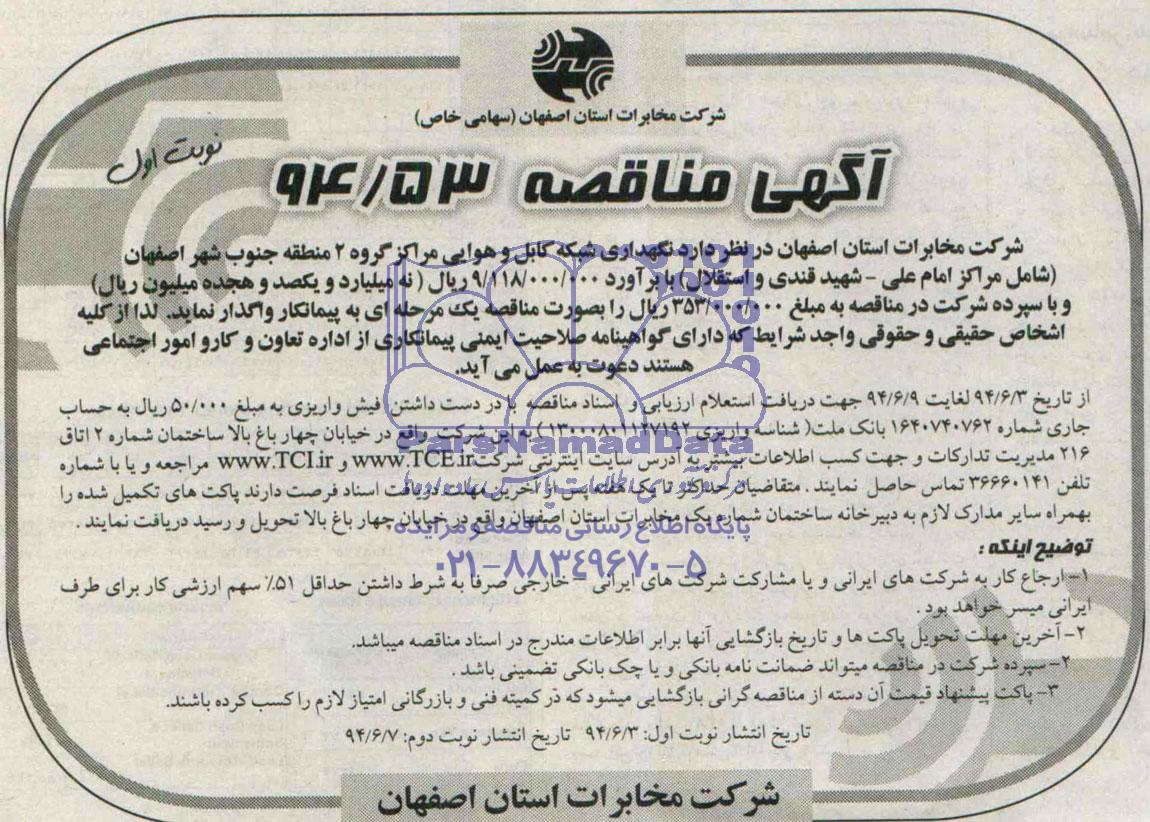 شرکت مخابرات استان اصفهان (سهامی خاص)
نوبت اول
آگهی مناقصه ۹۴/۵۳
شرکت مخابرات استان اصفهان در نظر دارد نگهداری شبکه کابل و هوایی مراکز گروه ۲ منطقه جنوب شهر اصفهان
(شامل مراکز امام علی - شهید قندی و استقلال) با برآورد ۹/۱۱۸/۰۰۰/۰۰۰ ریال ( نه میلیارد و یکصد و هجده میلیون ریال)
و با سپرده شرکت در مناقصه به مبلغ ۳۵۳/۰۰۰/۰۰۰ ریال را بصورت مناقصه یک مرحله ای به پیمانکار واگذار نماید. لذا از کلیه
اشخاص حقیقی و حقوقی واجد شرایط که دارای گواهینامه صلاحیت ایمنی پیمانکاری از اداره تعاون و کار و امور اجتماعی
هستند دعوت به عمل می آید.
از تاریخ ۹۴/۶/۳ لغایت ۹۴/۶/۹ جهت دریافت استعلام ارزیابی و اسناد مناقصه با در دست داشتن فیش واریزی به مبلغ ۵۰/۰۰۰ ریال به حساب
جاری شماره ۱۶۴۰۷۴۰۷۶۲ بانک ملت( شناسه واریزی ۱۳۰۰۰۰۸۰۱۱۴۷۱۹۲ ) به این شرکت واقع در خیابان چهار باغ بالا ساختمان شماره ۲ اتاق
۲۱۶ مدیریت تدارکات و جهت کسب اطلاعات بیشتر به آدرس سایت اینترنتی شرکت www.TCE.ir و www.TCI.ir مراجعه و یا با شماره
تلفن ۳۶۶۶۰۱۴۱ تماس حاصل نمایند . متقاضیان حداکثر تا یک هفته پس از آخرین مهلت دریافت اسناد فرصت دارند پاکت های تکمیل شده را
بهمراه سایر مدارک لازم به دبیرخانه ساختمان شماره یک مخابرات استان اصفهان واقع در خیابان چهار باغ بالا تحویل و رسید دریافت نمایند .
توضیح اینکه :
۱- ارجاع کار به شرکت های ایرانی و یا مشارکت شرکت های ایرانی - خارجی صرفا به شرط داشتن حداقل ۵۱٪ سهم ارزشی کار برای طرف
ایرانی میسر خواهد بود .
۲- آخرین مهلت تحویل پاکت ها و تاریخ بازگشایی آنها برابر اطلاعات مندرج در اسناد مناقصه میباشد.
۲- سپرده شرکت در مناقصه میتواند ضمانت نامه بانکی و یا چک بانکی تضمینی باشد .
۳- پاکت پیشنهاد قیمت آن دسته از مناقصه گرانی بازگشایی میشود که در کمیته فنی و بازرگانی امتیاز لازم را کسب کرده باشند.
تاریخ انتشار نوبت اول: ۹۴/۶/۳ تاریخ انتشار نوبت دوم: ۹۴/۶/۷
شرکت مخابرات استان اصفهان
ParsNamadData
پایگاه اطلاع رسانی مناقصه و مزایده
۰۲۱-۸۸۳۴۹۶۷۰-۵